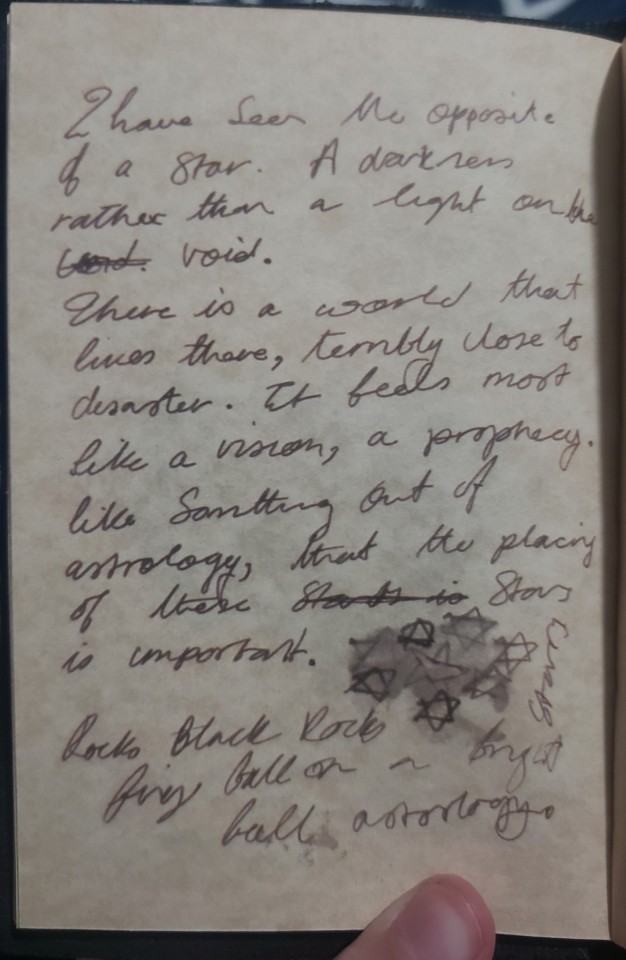 I have seen the opposite
of a star. A darkness
rather than a light on the
void. void.
There is a world that
lives there, terribly close to
disaster. It feels most
like a vision, a prophecy.
like Somthing out of
astrology, that the placing
of these Stars is Stars
is important.
Rocks Black Rocks
firey ball on a bright
ball astrology.